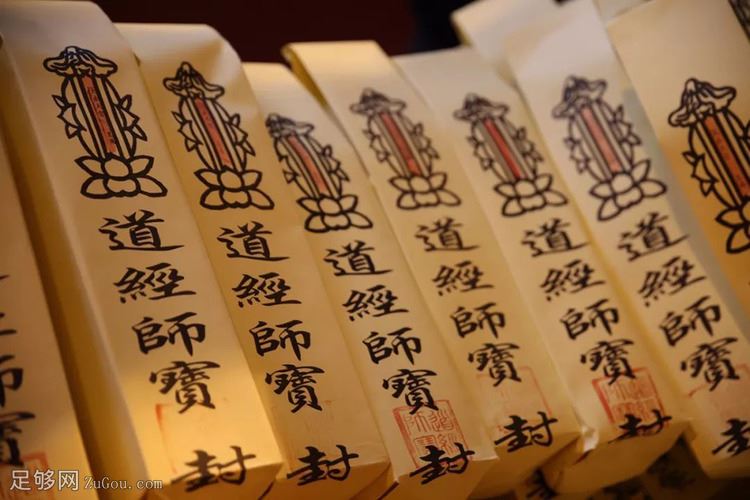 道經師寶封
道經師寶封
道經師寶封
道經師寶封
道經師寶封
道經師寶封
道經師寶封
足够网 ZuGou.com